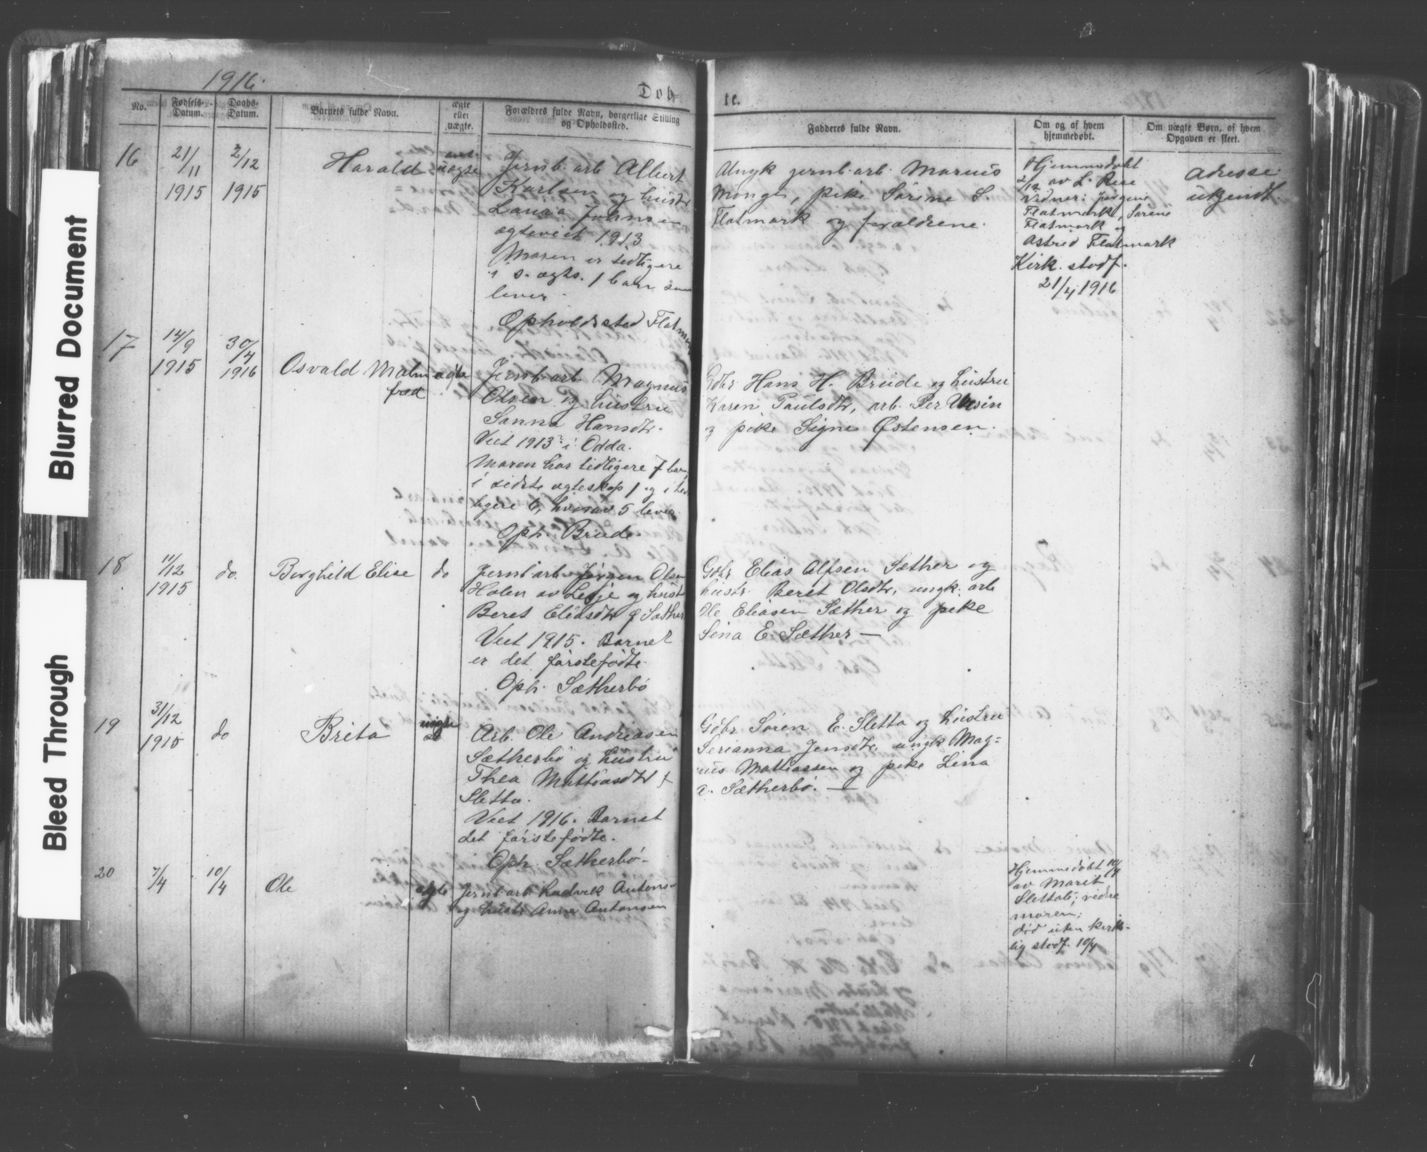 1916.
Døb
te.
No.
Fødsels-Datum.
Daabs-Datum.
Barnets fulde Navn.
ægte eller uægte.
Forældres fulde Navn, borgerlige Stilling og Opholdssted.
Fadderes fulde Navn.
Om og af hvem hjemmedøbt.
Om uægte Børn, af hvem Opgaven er skeet.
16
21/11 1915
2/12 1915
Harald
uægte
Jernb. arb. Albert
Karlsen og hustr
Laura Johnsen
ægteviet 1913
Moren er tidligere
lever.
Opholdssted Flatmark
Ungk. jernb. arb. Marius
Monge, pike Sörine S.
Flatmark og forældrene.
Hjemmedøbt
2/12 av L. Rise
Vidner: Jörgine
Flatmark, Sörine
Flatmark og
Astrid Flatmark
Kirk. stadf.
21/4 1916
Adresse
ukjendt
17
14/9 1915
30/4 1916
Osvald Malm
fred
ægte
Jernb. arb. Magnus
Olsen og hustru
Sanna Hansdtr.
Viet 1913 i Odda.
Moren har tidligere 7 barn,
i sidste ægteskap 1 og i tid
ligere 6, hvorav 5 lever
Oph. Brude.
Gdbr. Hans H. Brude og hustru
Karen Paulsdtr, arb. Per Ursin
og pike Signe Østensen.
18
11/12 1915
do.
Borghild Elise
do
Jernb. arb. Jörgen Olsen
Holen av Lesje og hustr
Beret Eliasdtr f. Sæther
Viet 1915. Barnet
er det förstefödte.
Oph. Sætherbö
Gdbr. Elias Olfsen Sæther og
hustr. Beret Olsdtr, ungk. arb.
Ole Eliasen Sæther og pike
Lina E. Sæther —
19
31/12 1915
do
Brita
uægte
Arb. Ole Andreasen
Sætherbö og hustru
Thea Mattiasdtr f.
Sletta.
Viet 1916. Barnet
det förstefödte.
Oph. Sætherbö.
Gdbr. Sören E. Sletta og hustru
Serianna Jensdtr, ungk. Mag=
nus Mattiassen og pike Lina
A. Sætherbö. —
20
7/4
10/4
Ole
ægte
Jernb. arb. Ludvik Antons-
og hustr. Anna Antonsen
Hjemmedöbt 10/4
av Marit
Slettali; vidne
moren;
död uten kirke-
lig stadf. 10/4
Blurred Document
Bleed Through